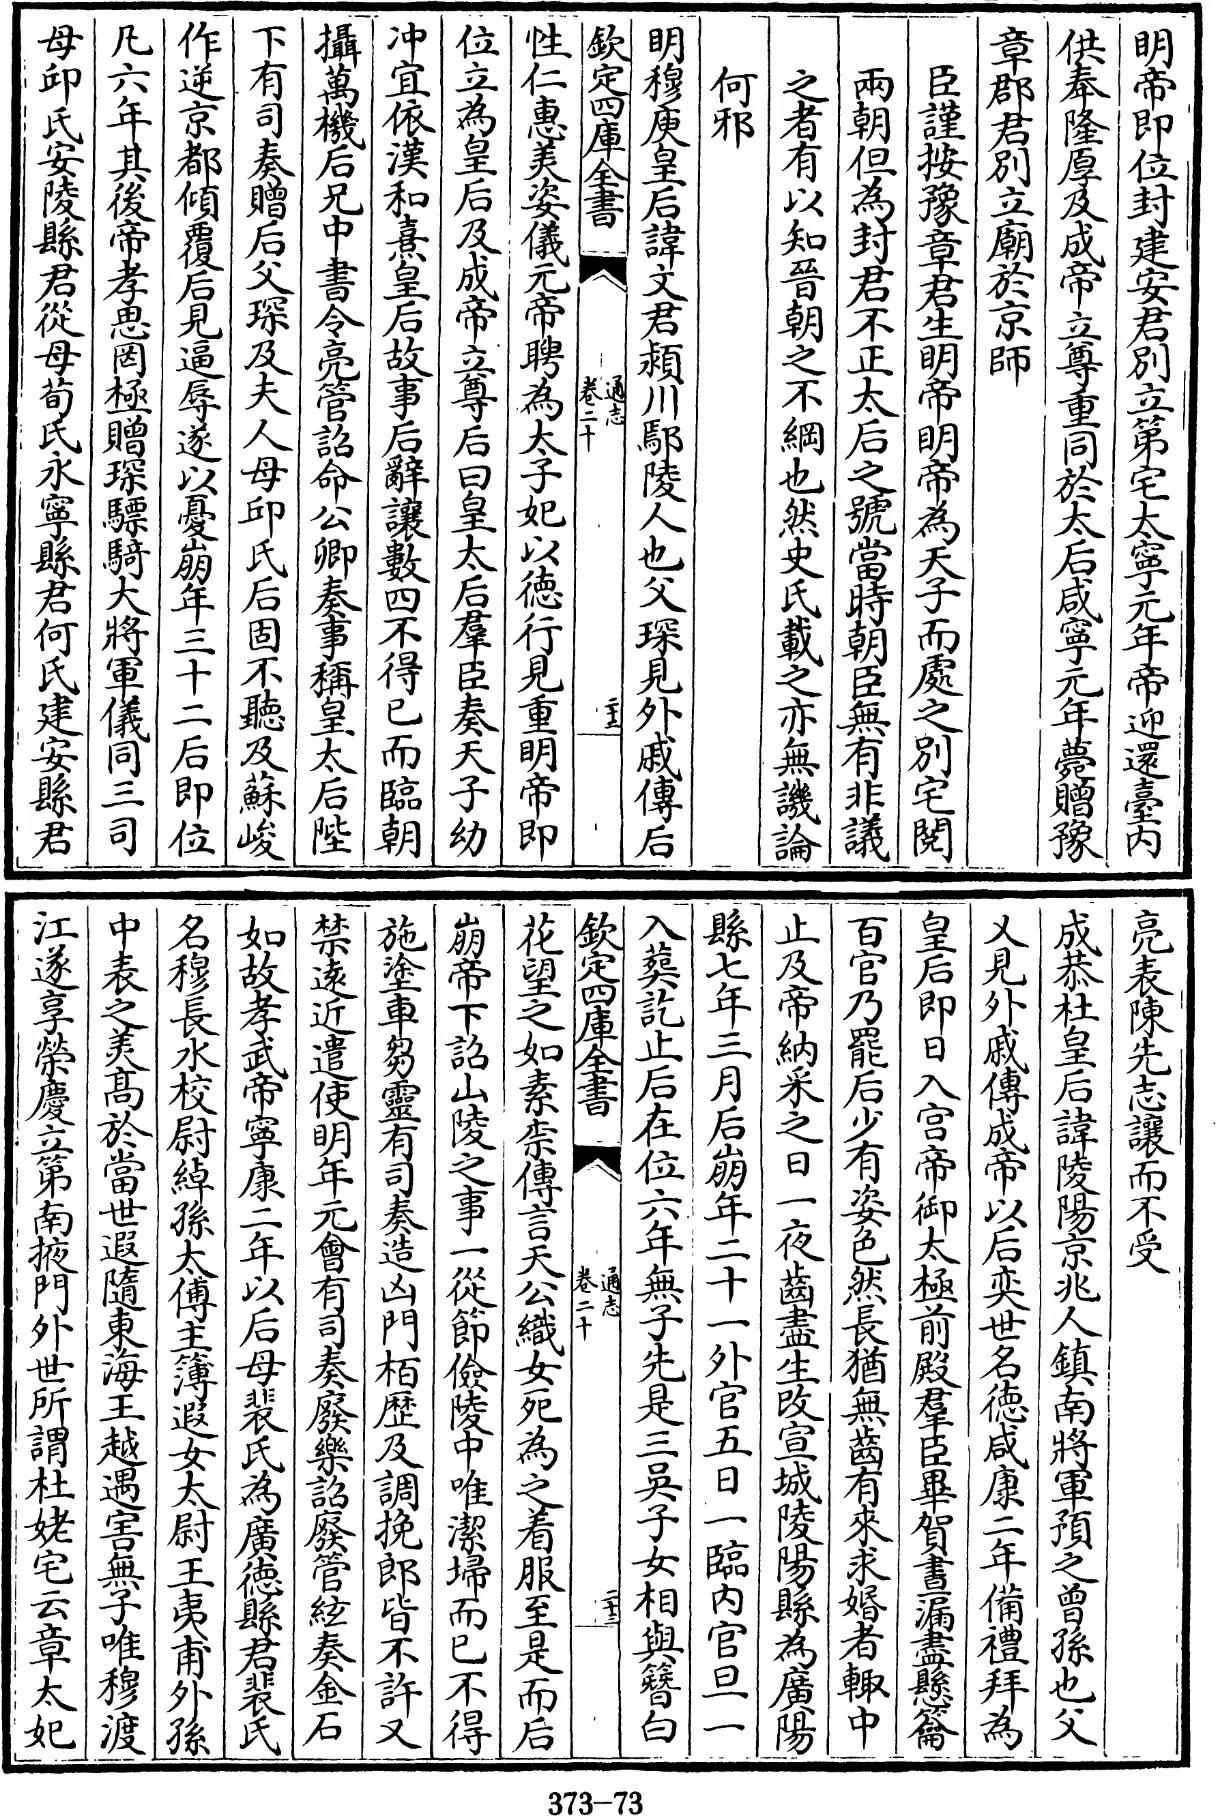 明帝即位封建安君別立第宅太寧元年帝迎還臺内
供奉隆厚及成帝立尊重同於太后咸寧元年薨贈豫
章郡君別立廟於京師
臣謹按豫章君生明帝明帝為天子而處之別宅閲
兩朝但為封君不正太后之號當時朝臣無有非議
之者有以知晉朝之不綱也然史氏載之亦無譏論
何邪
明穆庾皇后諱文君潁川鄢陵人也父琛見外戚傳后
欽定四庫全書
通志
卷二十
性仁惠美姿儀元帝聘為太子妃以德行見重明帝即
位立為皇后及成帝立尊后曰皇太后羣臣奏天子幼
冲宜依漢和熹皇后故事后辭讓數四不得已而臨朝
攝萬機后兄中書令亮管詔命公卿奏事稱皇太后陛
下有司奏贈后父琛及夫人母邱氏后固不聽及蘇峻
作逆京都傾覆后見逼辱遂以憂崩年三十二后即位
凡六年其後帝孝思罔極贈琛驃騎大將軍儀同三司
母邱氏安陵縣君從母荀氏永寧縣君何氏建安縣君
亮表陳先志讓而不受
成恭杜皇后諱陵陽京兆人鎮南將軍預之曾孫也父
乂見外戚傳成帝以后奕世名德咸康二年備禮拜為
皇后即日入宫帝御太極前殿羣臣畢賀晝漏盡懸籥
百官乃罷后少有姿色然長猶無齒有來求婚者輒中
止及帝納采之日一夜齒盡生改宣城陵陽縣為廣陽
縣七年三月后崩年二十一外官五日一臨内官旦一
入葬訖止后在位六年無子先是三吳子女相與簪白
欽定四庫全書
通志
卷二十
花望之如素柰傳言天公織女死為之着服至是而后
崩帝下詔山陵之事一從節儉陵中唯潔埽而已不得
施塗車芻靈有司奏造凶門栢歴及調挽郎皆不許又
禁遠近遣使明年元會有司奏廢樂詔廢管絃奏金石
如故孝武帝寧康二年以后母裴氏為廣德縣君裴氏
名穆長水校尉綽孫太傅主簿遐女太尉王夷甫外孫
中表之美髙於當世遐隨東海王越遇害無子唯穆渡
江遂享榮慶立第南掖門外世所謂杜姥宅云章太妃
373-73